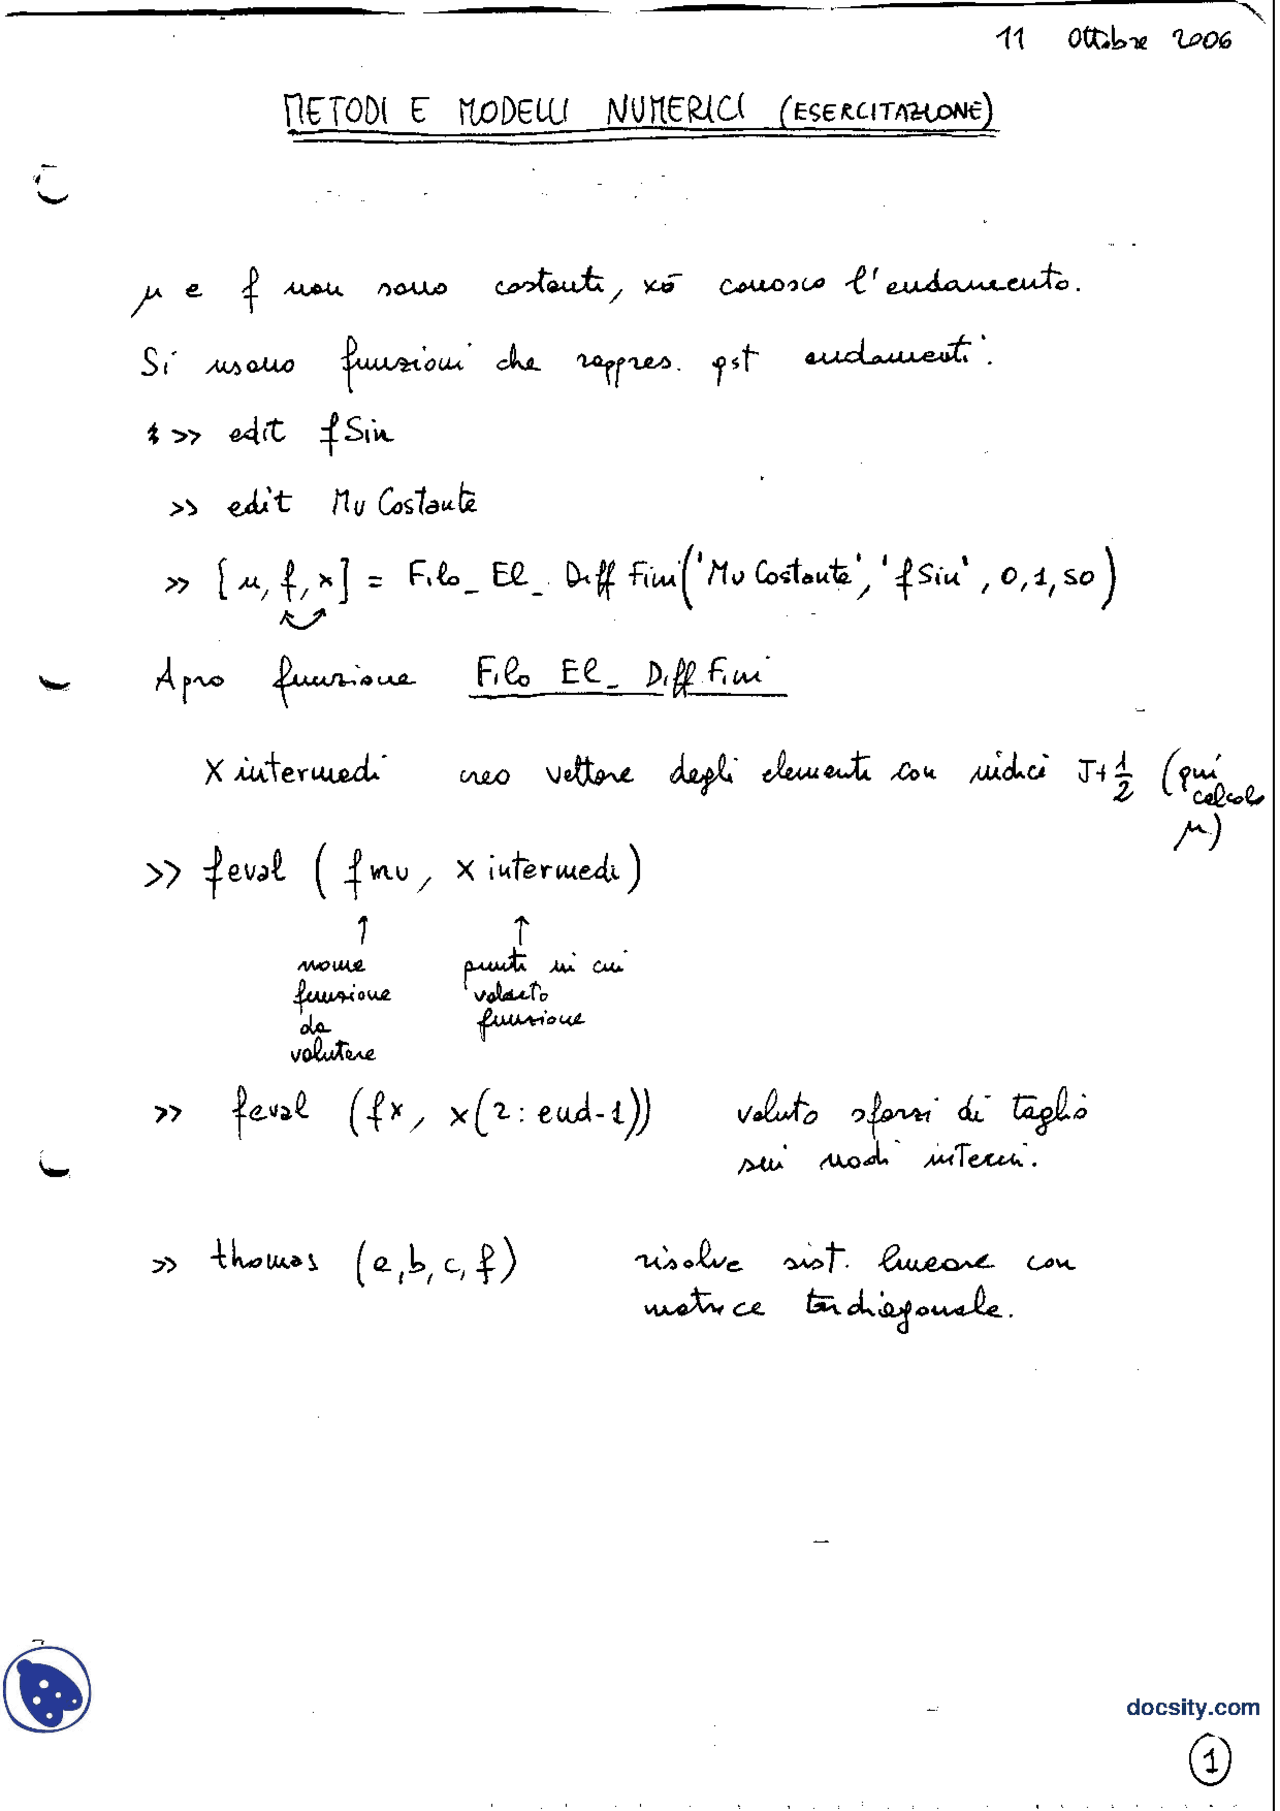 11 Ottobre 2006
METODI E MODELLI NUMERICI (ESERCITAZIONE)
μ e f non sono costanti, xò conosco l'andamento.
Si usano funzioni che rappres. qst andamenti.
>> edit fSin
>> edit Mu Costante
>> [u, f, x] = Filo_El_DiffFini('MuCostante', 'fSin', 0,1,50)
Apro funzione Filo El_DiffFini
X intermedi creo vettore degli elementi con indici J+1/2 (qui
calcolo
μ)
>> feval (fmu, Xintermedi)
↑ ↑
nome punti in cui
funzione valuto
da funzione
valutare
>> feval (fx, x(2:end-1)) valuto sforzi di taglio
sui nodi interni.
>> thomas (a,b,c,f) risolve sist. lineare con
matrice tridiagonale.
docsity.com
1